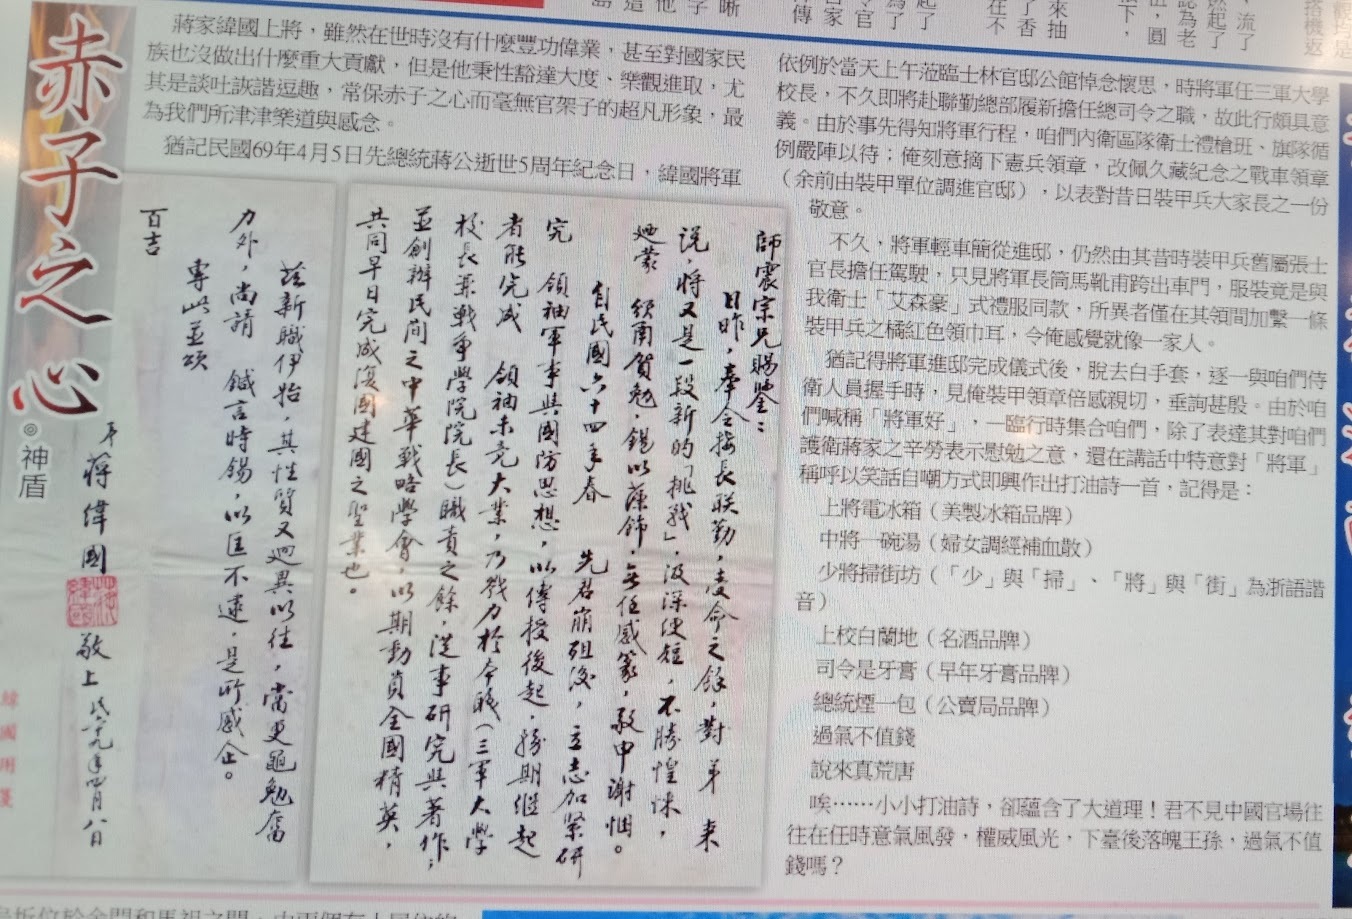 赤子之心
◎神盾
蔣家緯國上將，雖然在世時沒有什麼豐功偉業，甚至對國家民
族也沒做出什麼重大貢獻，但是他秉性豁達大度、樂觀進取，尤
其是談吐詼諧逗趣，常保赤子之心而毫無官架子的超凡形象，最
為我們所津津樂道與感念。
猶記民國69年4月5日先總統蔣公逝世5周年紀念日，緯國將軍
依例於當天上午蒞臨士林官邸公館悼念懷思，時將軍任三軍大學
校長，不久即將赴聯勤總部履新擔任總司令之職，故此行頗具意
義。由於事先得知將軍行程，咱們內衛區隊衛士禮槍班、旗隊循
例嚴陣以待；俺刻意摘下憲兵領章，改佩久藏紀念之戰車領章
（余前由裝甲單位調進官邸），以表對昔日裝甲兵大家長之一份
敬意。
不久，將軍輕車簡從進邸，仍然由其昔時裝甲兵舊屬張士
官長擔任駕駛，只見將軍長筒馬靴甫跨出車門，服裝竟是與
我衛士「艾森豪」式禮服同款，所異者僅在其領間加繫一條
裝甲兵之橘紅色領巾耳，令俺感覺就像一家人。
猶記得將軍進邸完成儀式後，脫去白手套，逐一與咱們侍
衛人員握手時，見俺裝甲領章倍感親切，垂詢甚殷。由於咱
們喊稱「將軍好」，—臨行時集合咱們，除了表達其對咱們
護衛蔣家之辛勞表示慰勉之意，還在講話中特意對「將軍」
稱呼以笑話自嘲方式即興作出打油詩一首，記得是：
上將電冰箱（美製冰箱品牌）
中將一碗湯（婦女調經補血散）
少將掃街坊（「少」與「掃」、「將」與「街」為浙語諧
音）
上校白蘭地（名酒品牌）
司令是牙膏（早年牙膏品牌）
總統煙一包（公賣局品牌）
過氣不值錢
說來真荒唐
唉……小小打油詩，卻蘊含了大道理！君不見中國官場往
往在任時意氣風發，權威風光，下臺後落魄王孫，過氣不值
錢嗎？
師震宗兄賜鑒：
日昨，奉令接長聯勤，受命之餘，對弟來
說，將又是一段新的「挑戰」，汲深綆短，不勝惶悚，
迺蒙　頒函賀勉，錫以藻飾，無任感篆，敬申謝悃。
自民國六十四年春　先君崩殂後，立志加緊研
究　領袖軍事與國防思想，以傳授後起，務期繼起
者能完成　領袖未竟大業，乃戮力於本職（三軍大學
校長兼戰爭學院院長）職責之餘，從事研究與著作；
並創辦民間之中華戰略學會，以期動員全國精英，
共同早日完成復國建國之聖業也。
茲新職伊始，其性質又迥異以往，當更黽勉奮
力外，尚請　鍼言時錫，以匡不逮，是所感企。
專此並頌
百吉
弟蔣緯國敬上 六十九年四月八日
緯國用箋